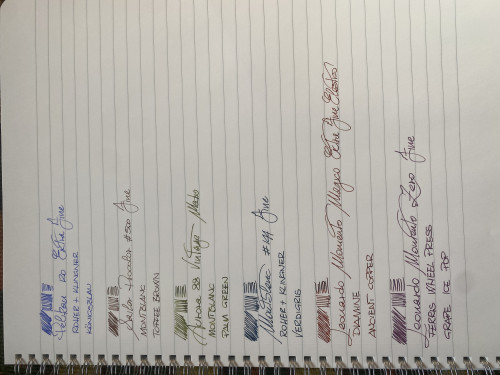 Pelikan 120 Extra Fine
ROHRER + KLINGNER
KÖNIGSBLAU
Sailor Procolor #500 Fine
MONTBLANC
TOFFEE BROWN
Aurora 88 Vintage Medio
MONTBLANC
PALM GREEN
Montblanc #144 Fine
ROHRER + KLINGNER
VERDIGRIS
Leonardo Momento Magico Extra Fine Elastico
DIAMINE
ANCIENT COPPER
Leonardo Momento Zero Fine
FERRIS WHEEL PRESS
GRAPE ICE POP